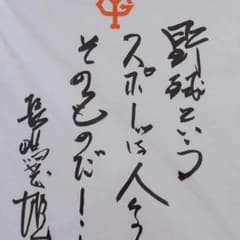 YG
野球という
スポーツは人生
そのものだ!
長嶋茂雄